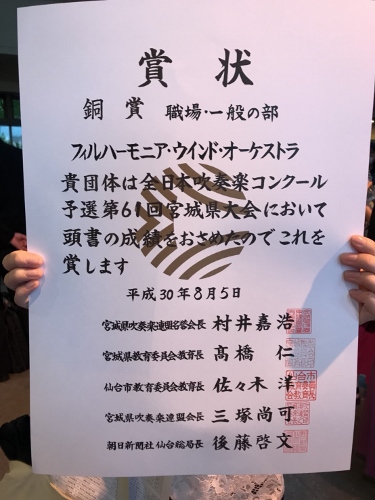 賞状
銅賞 職場・一般の部
フィルハーモニア・ウインド・オーケストラ
貴団体は全日本吹奏楽コンクール
予選第61回宮城県大会において
頭書の成績をおさめたのでこれを
賞します
平成30年8月5日
宮城県吹奏楽連盟名誉会長 村井嘉浩
宮城県教育委員会教育長 髙橋仁
仙台市教育委員会教育長 佐々木洋
宮城県吹奏楽連盟会長 三塚尚可
朝日新聞社仙台総局長 後藤啓文